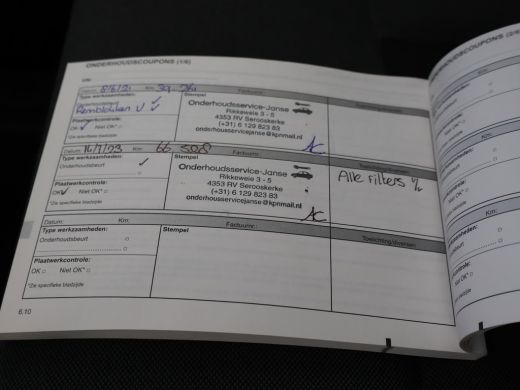 ONDERHOUDSCOUPONS (1/6)
VIN:
Datum: Km: Factuurnr.:
Type werkzaamheden: Stempel
Onderhoudsbeurt ✓
Remblokken V ✓
Plaatwerkcontrole:
OK ✓ Niet OK* □
*Zie specifieke bladzijde
Onderhoudsservice-Janse
Rikkeweie 3 - 5
4353 RV Serooskerke
(+31) 6 129 823 83
onderhoudsservicejanse@kpnmail.nl
Datum: 16/7/23 Km: 66 508 Factuurnr.:
Type werkzaamheden: Stempel
Onderhoudsbeurt ✓
Plaatwerkcontrole:
OK ✓ Niet OK* □
*Zie specifieke bladzijde
Onderhoudsservice-Janse
Rikkeweie 3 - 5
4353 RV Serooskerke
(+31) 6 129 823 83
onderhoudsservicejanse@kpnmail.nl
Alle filters
Datum: Km: Factuurnr.:
Type werkzaamheden: Stempel Toelichting/diversen:
Onderhoudsbeurt □
Plaatwerkcontrole:
OK □ Niet OK* □
*Zie specifieke bladzijde
6.10
ONDERHOUDSCOUPONS (2/6)